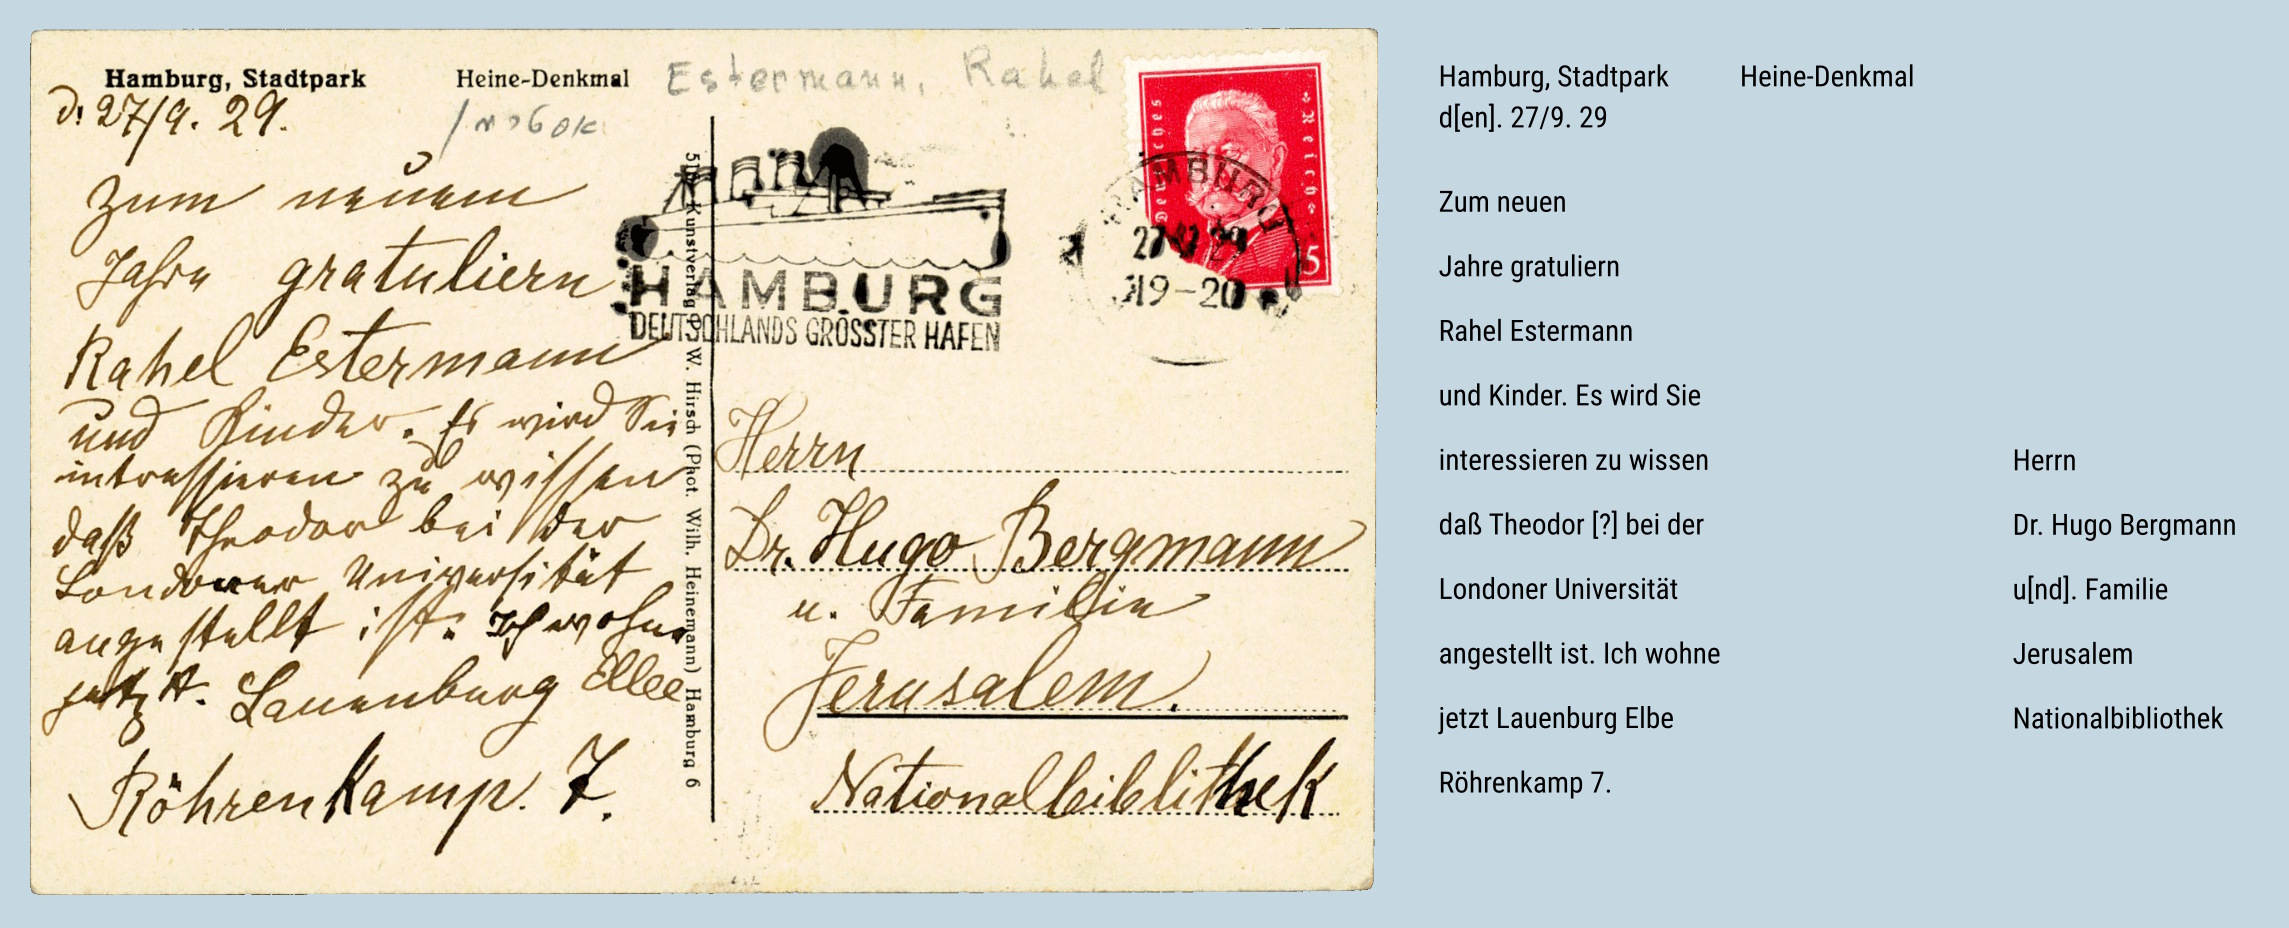 Hamburg, Stadtpark Heine-Denkmal
Estermann, Rahel
d. 27/9. 29.
Zum neuem
Jahre gratuliern
Rahel Estermann
und Kinder. Es wird Sie
intressieren zu wissen
daß Theodor bei der
Londoner Universität
angestellt ist. Ich wohne
jetzt. Lauenburg Elbe
Röhrenkamp. 7.
Kunstverlag W. Hirsch (Phot. Wilh. Heinemann) Hamburg 6
HAMBURG
DEUTSCHLANDS GRÖSSTER HAFEN
Deutsches Reich
5
HAMBURG
27 9 29
19-20
Herrn
Dr. Hugo Bergmann
u. Familie
Jerusalem.
Nationalbiblithek
Hamburg, Stadtpark Heine-Denkmal
d[en]. 27/9. 29
Zum neuen
Jahre gratuliern
Rahel Estermann
und Kinder. Es wird Sie
interessieren zu wissen
daß Theodor [?] bei der
Londoner Universität
angestellt ist. Ich wohne
jetzt Lauenburg Elbe
Röhrenkamp 7.
Herrn
Dr. Hugo Bergmann
u[nd]. Familie
Jerusalem
Nationalbibliothek